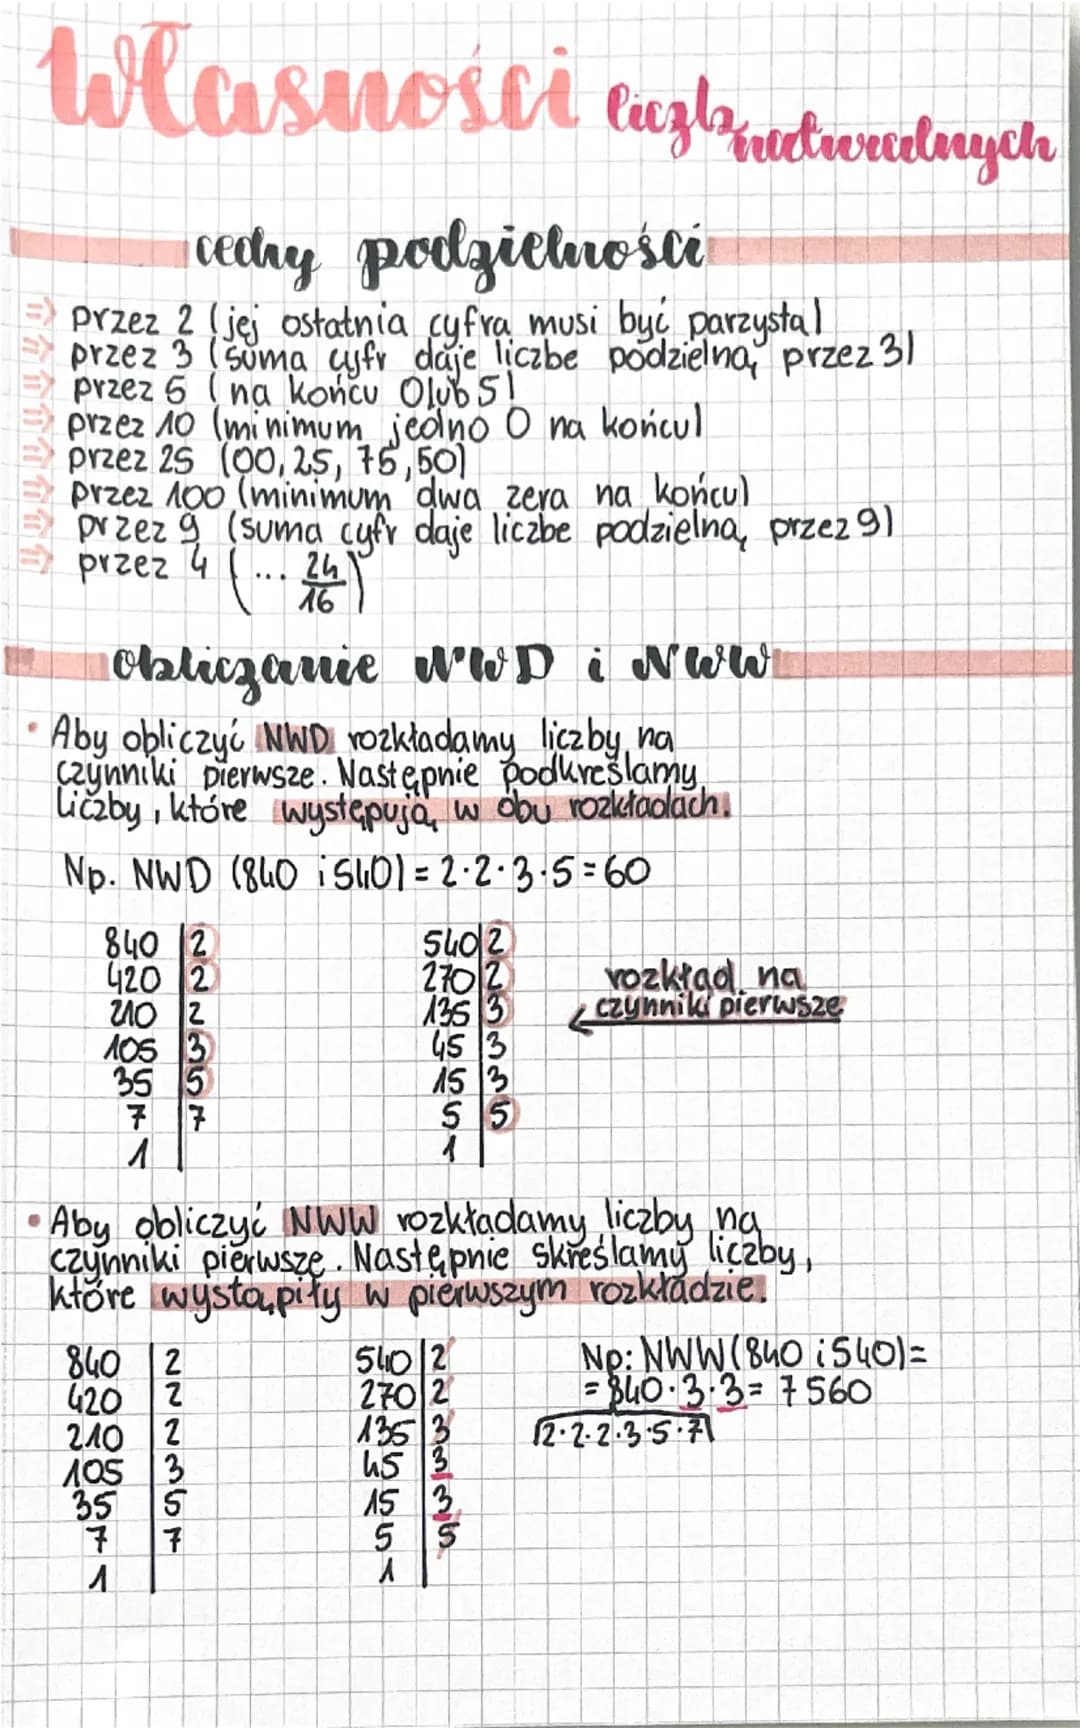 Własności liczb naturalnych
cechy podzielności
⇒ przez 2 (jej ostatnia cyfra musi być parzysta)
⇒ przez 3 (suma cyfr daje liczbe podzielną przez 3)
⇒ przez 5 (na końcu 0 lub 5)
⇒ przez 10 (minimum jedno 0 na końcu)
⇒ przez 25 (00, 25, 75, 50)
⇒ przez 100 (minimum dwa zera na końcu)
⇒ przez 9 (suma cyfr daje liczbe podzielną przez 9)
⇒ przez 4 (... 24
16)
obliczanie NWD i NWW
• Aby obliczyć NWD rozkładamy liczby na
czynniki pierwsze. Następnie podkreślamy
liczby, które występują w obu rozkładach.
Np. NWD (840 i 540) = 2·2·3·5=60
840 | 2 540 | 2
420 | 2 270 | 2 rozkład na
210 | 2 135 | 3 ← czynniki pierwsze
105 | 3 45 | 3
35 | 5 15 | 3
7 | 7 5 | 5
1 | 1 |
• Aby obliczyć NWW rozkładamy liczby na
czynniki pierwsze. Następnie skreślamy liczby,
które wystąpiły w pierwszym rozkładzie.
840 | 2 540 | 2 Np: NWW (840 i 540)=
420 | 2 270 | 2 = 840·3·3= 7560
210 | 2 135 | 3 2·2·2·3·5·7
105 | 3 45 | 3
35 | 5 15 | 3
7 | 7 5 | 5
1 | 1 |